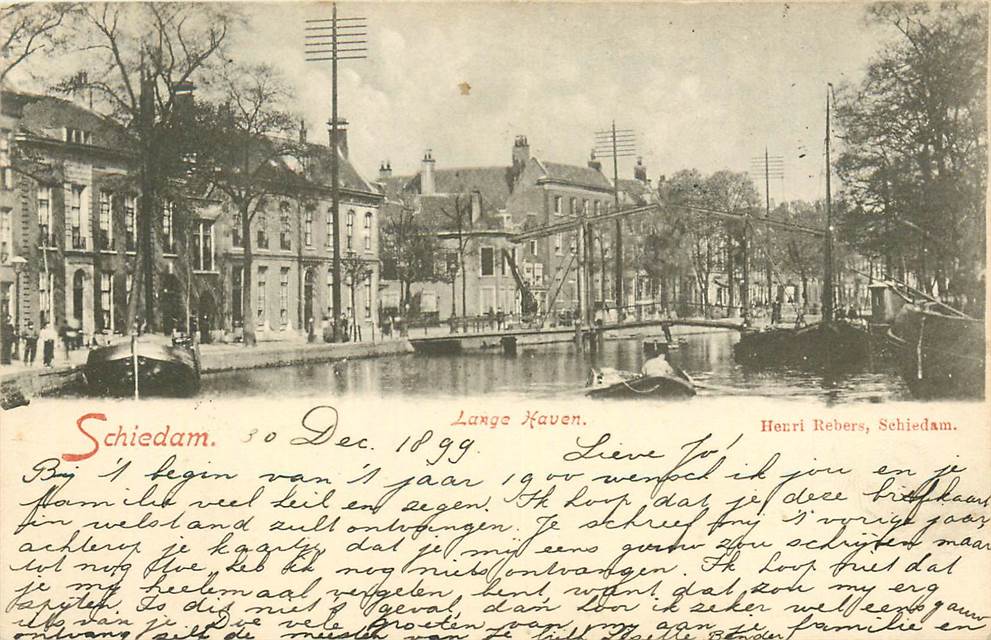 Lange Haven.
Schiedam. 30 Dec. 1899. Lieve Jo'
Henri Rebers, Schiedam.
Bij 't begin van 't jaar 1900 wensch ik jou en je
familie veel heil en zegen. Ik hoop dat je deze briefkaart
in welstand zult ontvangen. Je schreef mij 't vorige jaar
achterop je kaartje dat je mij eens gauw zou schrijven maar
tot nog toe heb ik nog niets ontvangen. Ik hoop niet dat
je mij heelemaal vergeten bent want dat zou mij erg
spijten. Is dit niet 't geval, dan hoor ik zeker wel eens gauw
iets van je. Doe vele groeten van mij aan je familie en
ontvang zelf de meesten van je Bender.